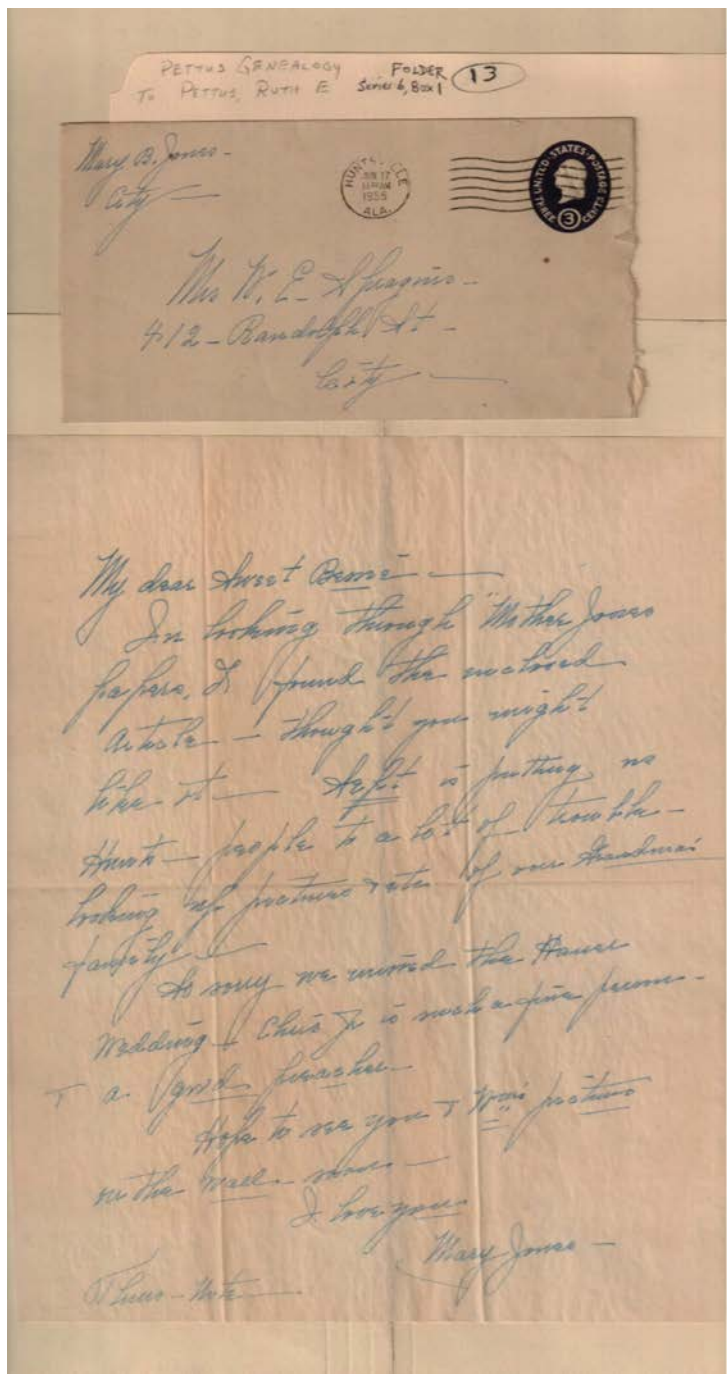 PETTUS GENEALOGY
TO PETTUS, RUTH E
FOLDER
Series 6, Box 1
13
Mary B. Jones -
City
HUNTSVILLE
JUN 17
1955
ALA.
UNITED STATES POSTAGE
THREE 3 CENTS
Mrs W. E. Spragins -
412 - Randolph St -
City
My dear Sweet
In looking through "Mother Jones
papers, I found the enclosed
Article - thought you might
like it - is putting us
people to a lot of trouble -
looking up pictures & etc of our Grandma's
family
So sorry we missed the
Wedding - Chris Jr is such a fine
& a good preacher
Hope to see you & pictures
on the wall soon -
I love you
Mary Jones -
Thurs - Note